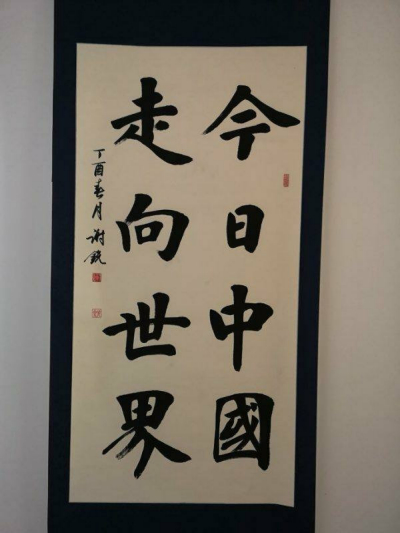 今日中國
走向世界
丁酉春月谢锐